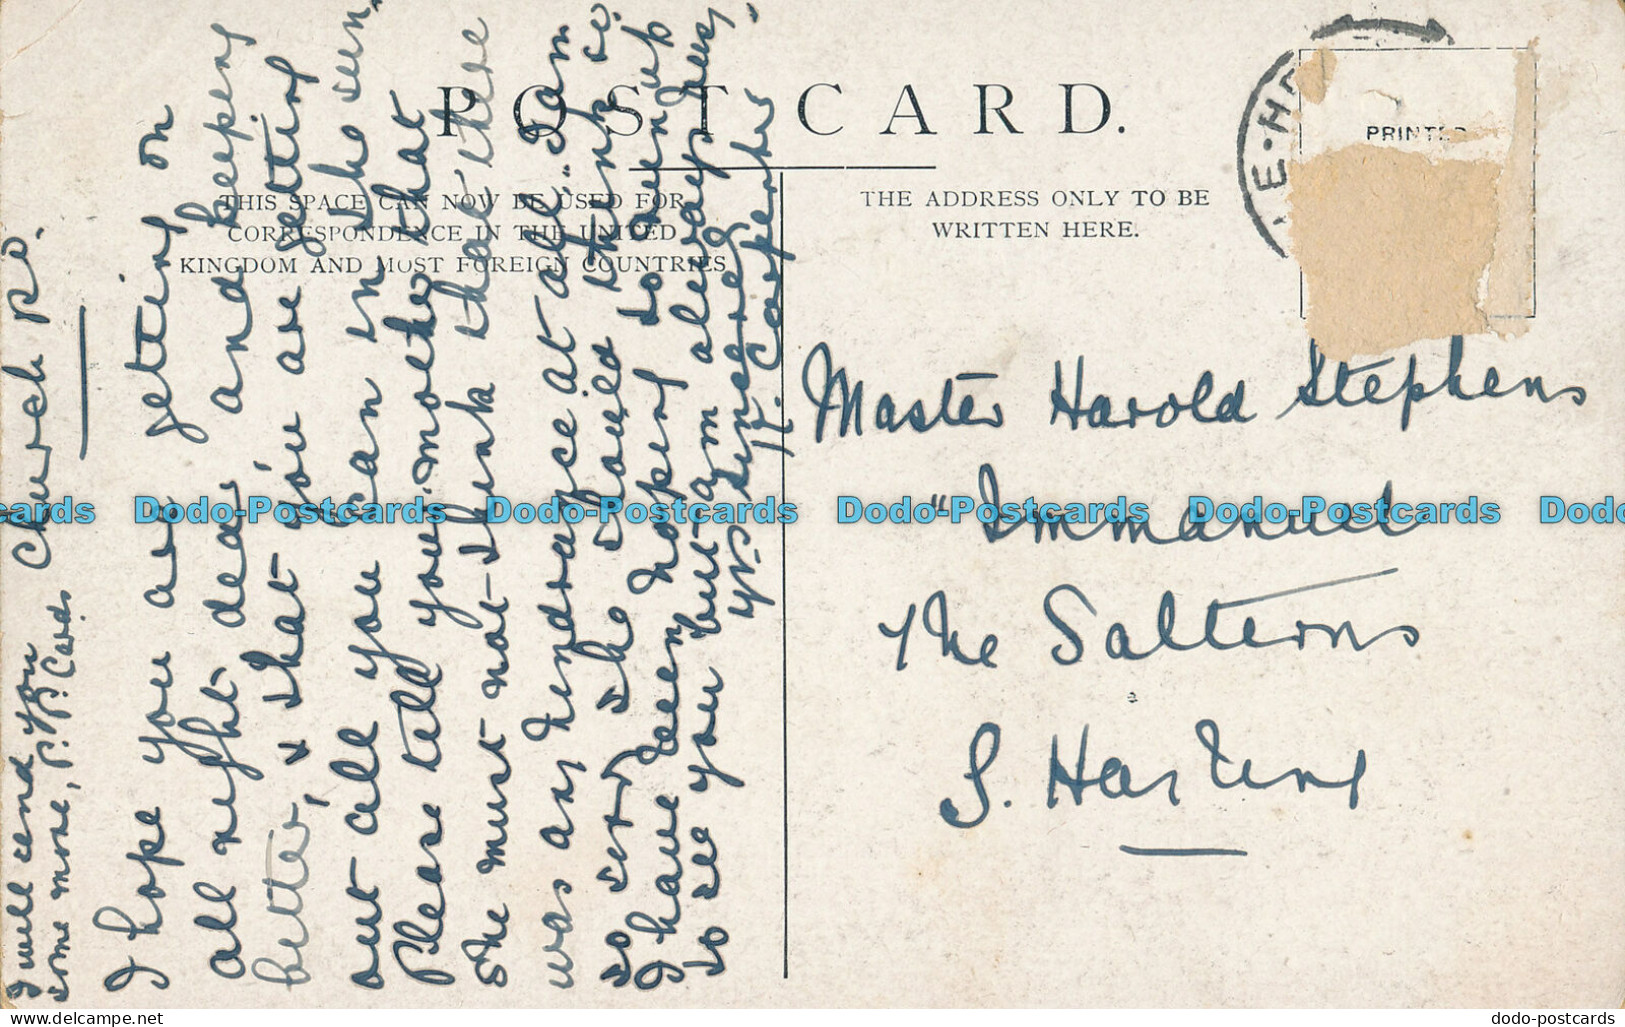 POST CARD.
THIS SPACE CAN NOW BE USED FOR
CORRESPONDENCE IN THE UNITED
KINGDOM AND MOST FOREIGN COUNTRIES
THE ADDRESS ONLY TO BE
WRITTEN HERE.
PRINTED
E·H
I will send you
some more, P.P. Cards
Church Rd.
I hope you are getting on
all right dear, and keeping
better, & that you are getting
out all you can in the sun.
Please tell your mother that
she must not think that there
was any hindrance at all. I am
so sorry she should think so.
I have been hoping to run up
to see you but am always busy.
Yrs sincerely
H. Carpenter
Master Harold Stephens
"Immanuel
The Salterns
S. Hayling
Dodo-Postcards Dodo-Postcards Dodo-Postcards Dodo-Postcards Dodo-Postcards
delcampe.net
dodo-postcards